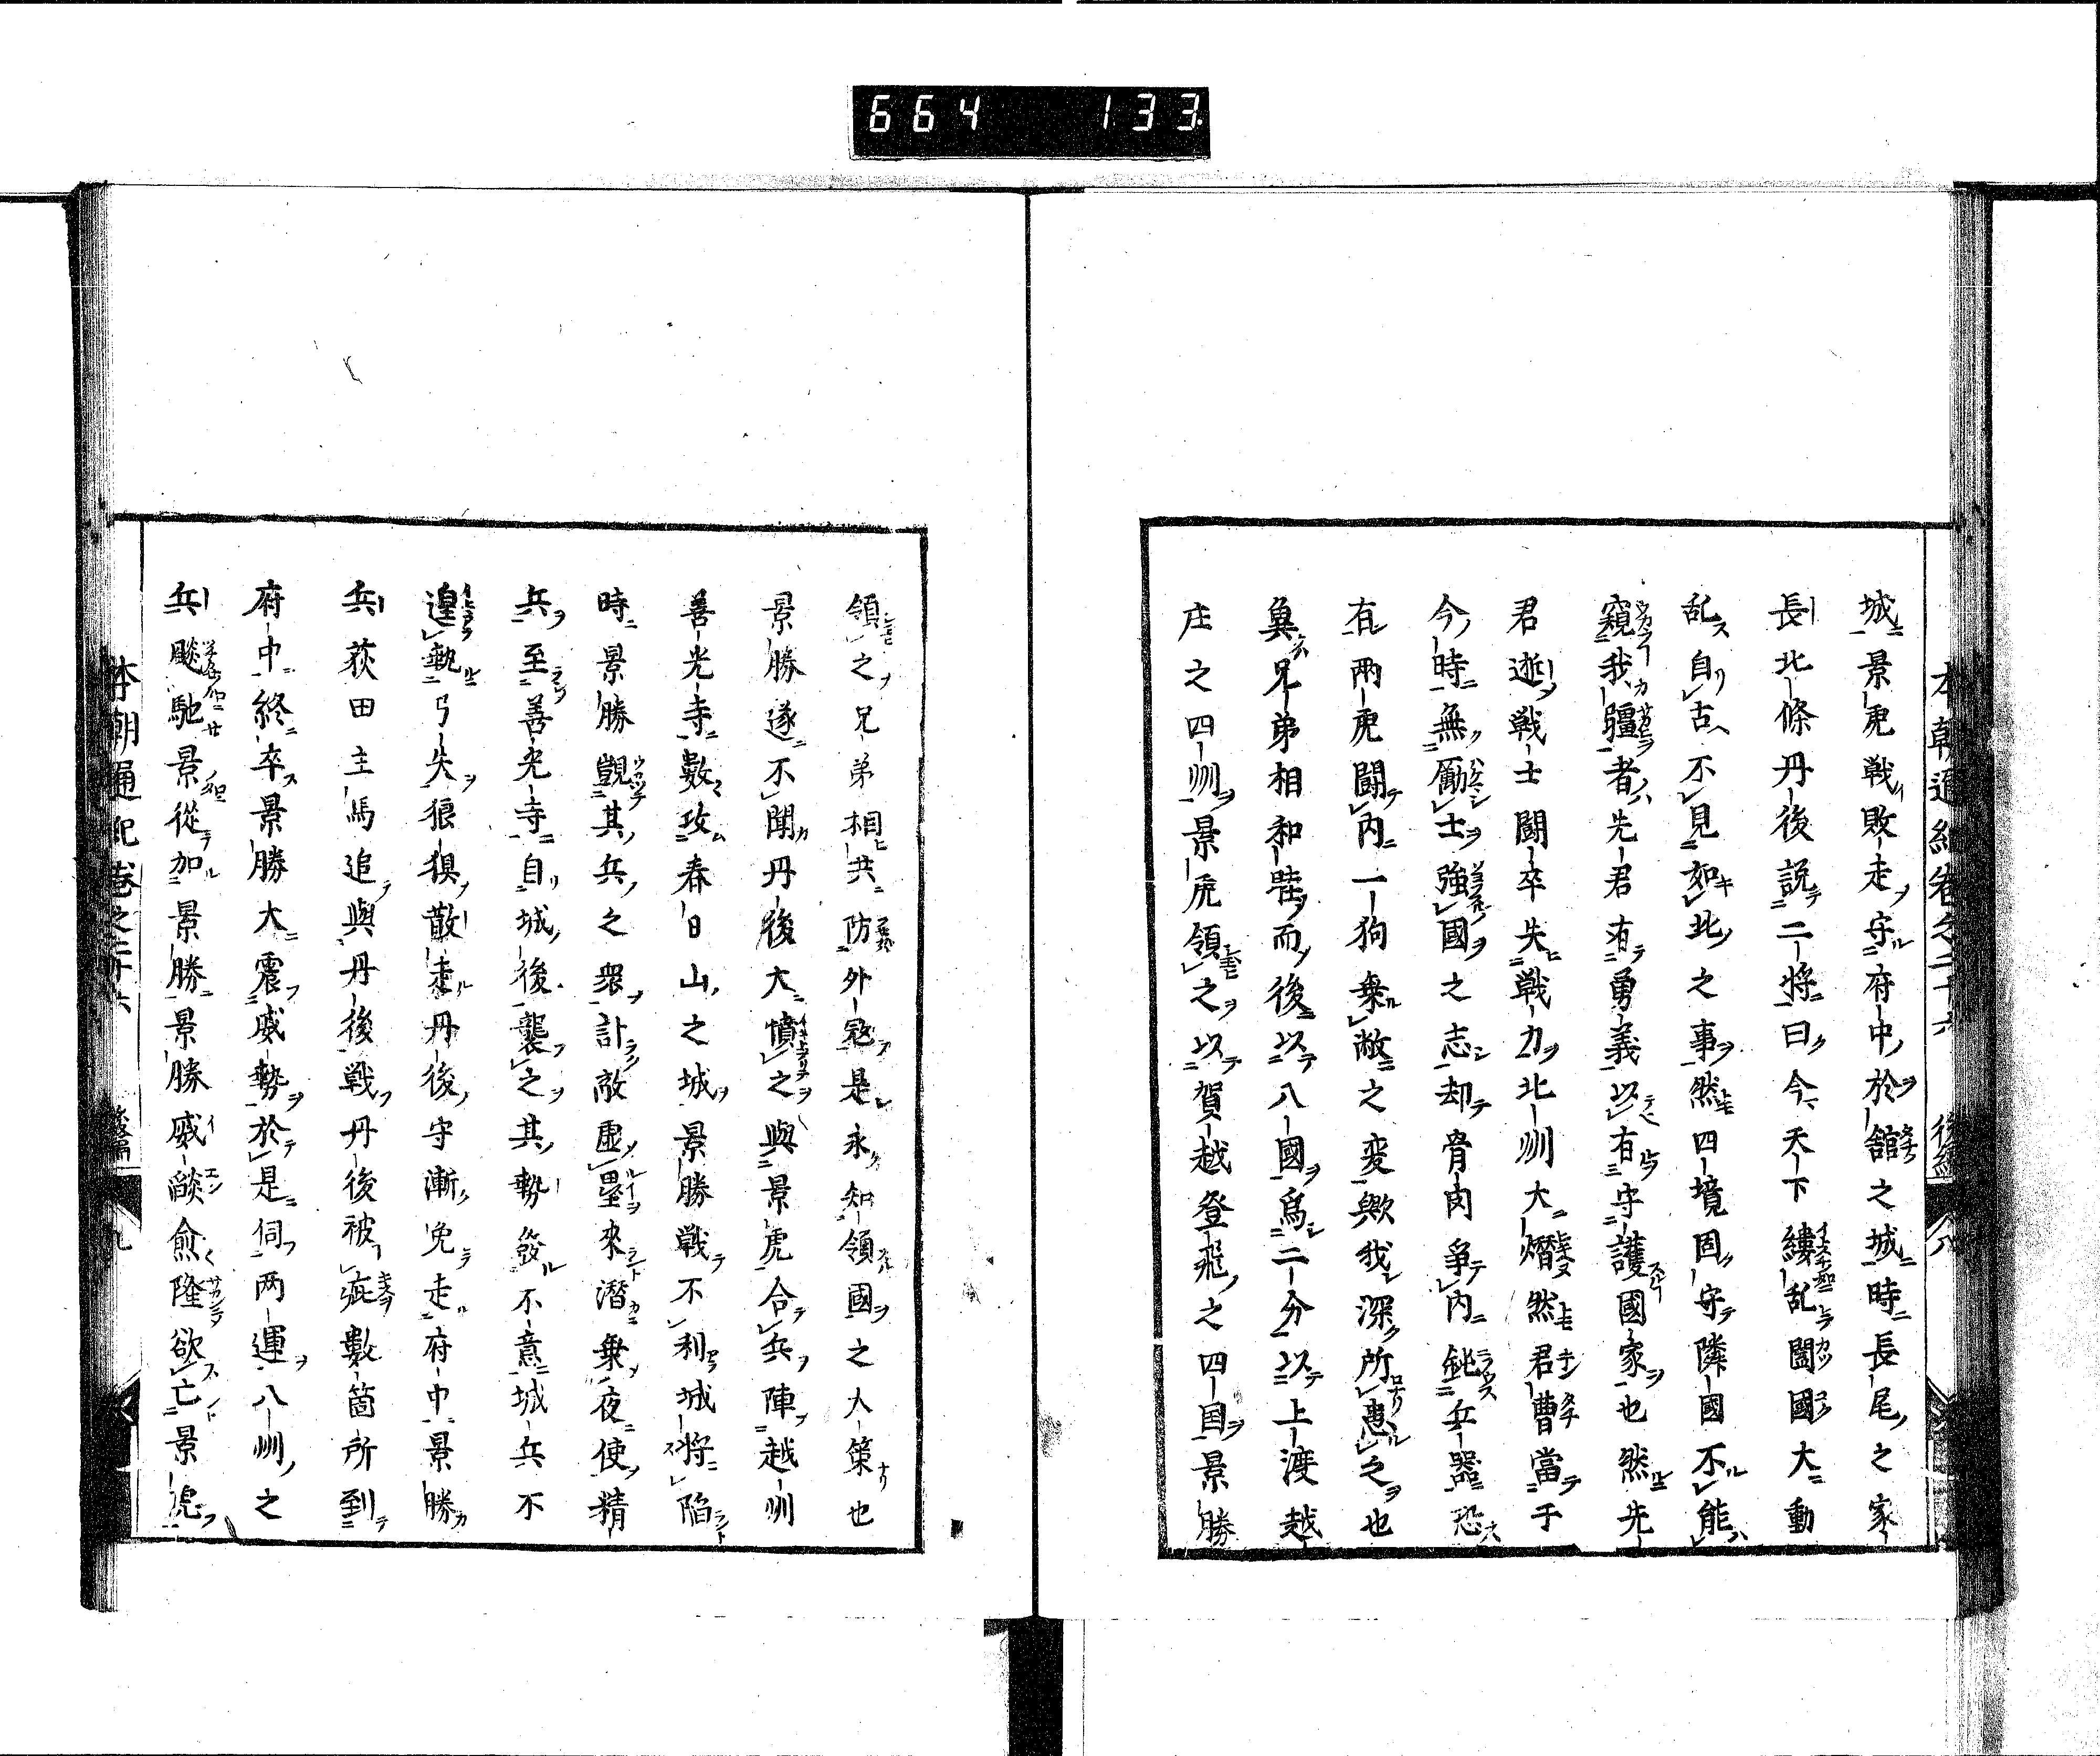 664 133
本朝通紀卷之二十六 後編 八
城景虎戦敗走守府中於舘之城時長尾之家
長北條丹後説二将曰今天下縷乱闔國大動
乱自古不見如此之事然四境固守隣國不能
窺我疆者先君有勇義以有守護國家也然先
君逝戦士闘卒失戦力北州大熸然君曹當于
今時無勵士強國之志却骨肉爭内鈍兵器恐
有兩虎闘内一狗乗敝之変歟我深所患之也
兄弟相和睦而後以八國爲二分以上渡越
庄之四州景虎領之以賀越登飛之四国景勝
領之兄弟相共防外冦是永知領國之大策也
景勝遂不聞丹後大憤之與景虎合兵陣越州
善光寺數攻春日山之城景勝戦不利城将陥
時景勝覬其兵之衆計敵虚壘來潜乗夜使精
兵至善光寺自城後襲之其勢發不意城兵不
遑執弓矢狼狽散走丹後守漸免走府中景勝
兵荻田主馬追與丹後戦丹後被疵數箇所到
府中終卒景勝大震威勢於是伺两運八州之
兵飈馳景從加景勝景勝威燄愈隆欲亡景虎
本朝通紀卷之二十六 後編 九